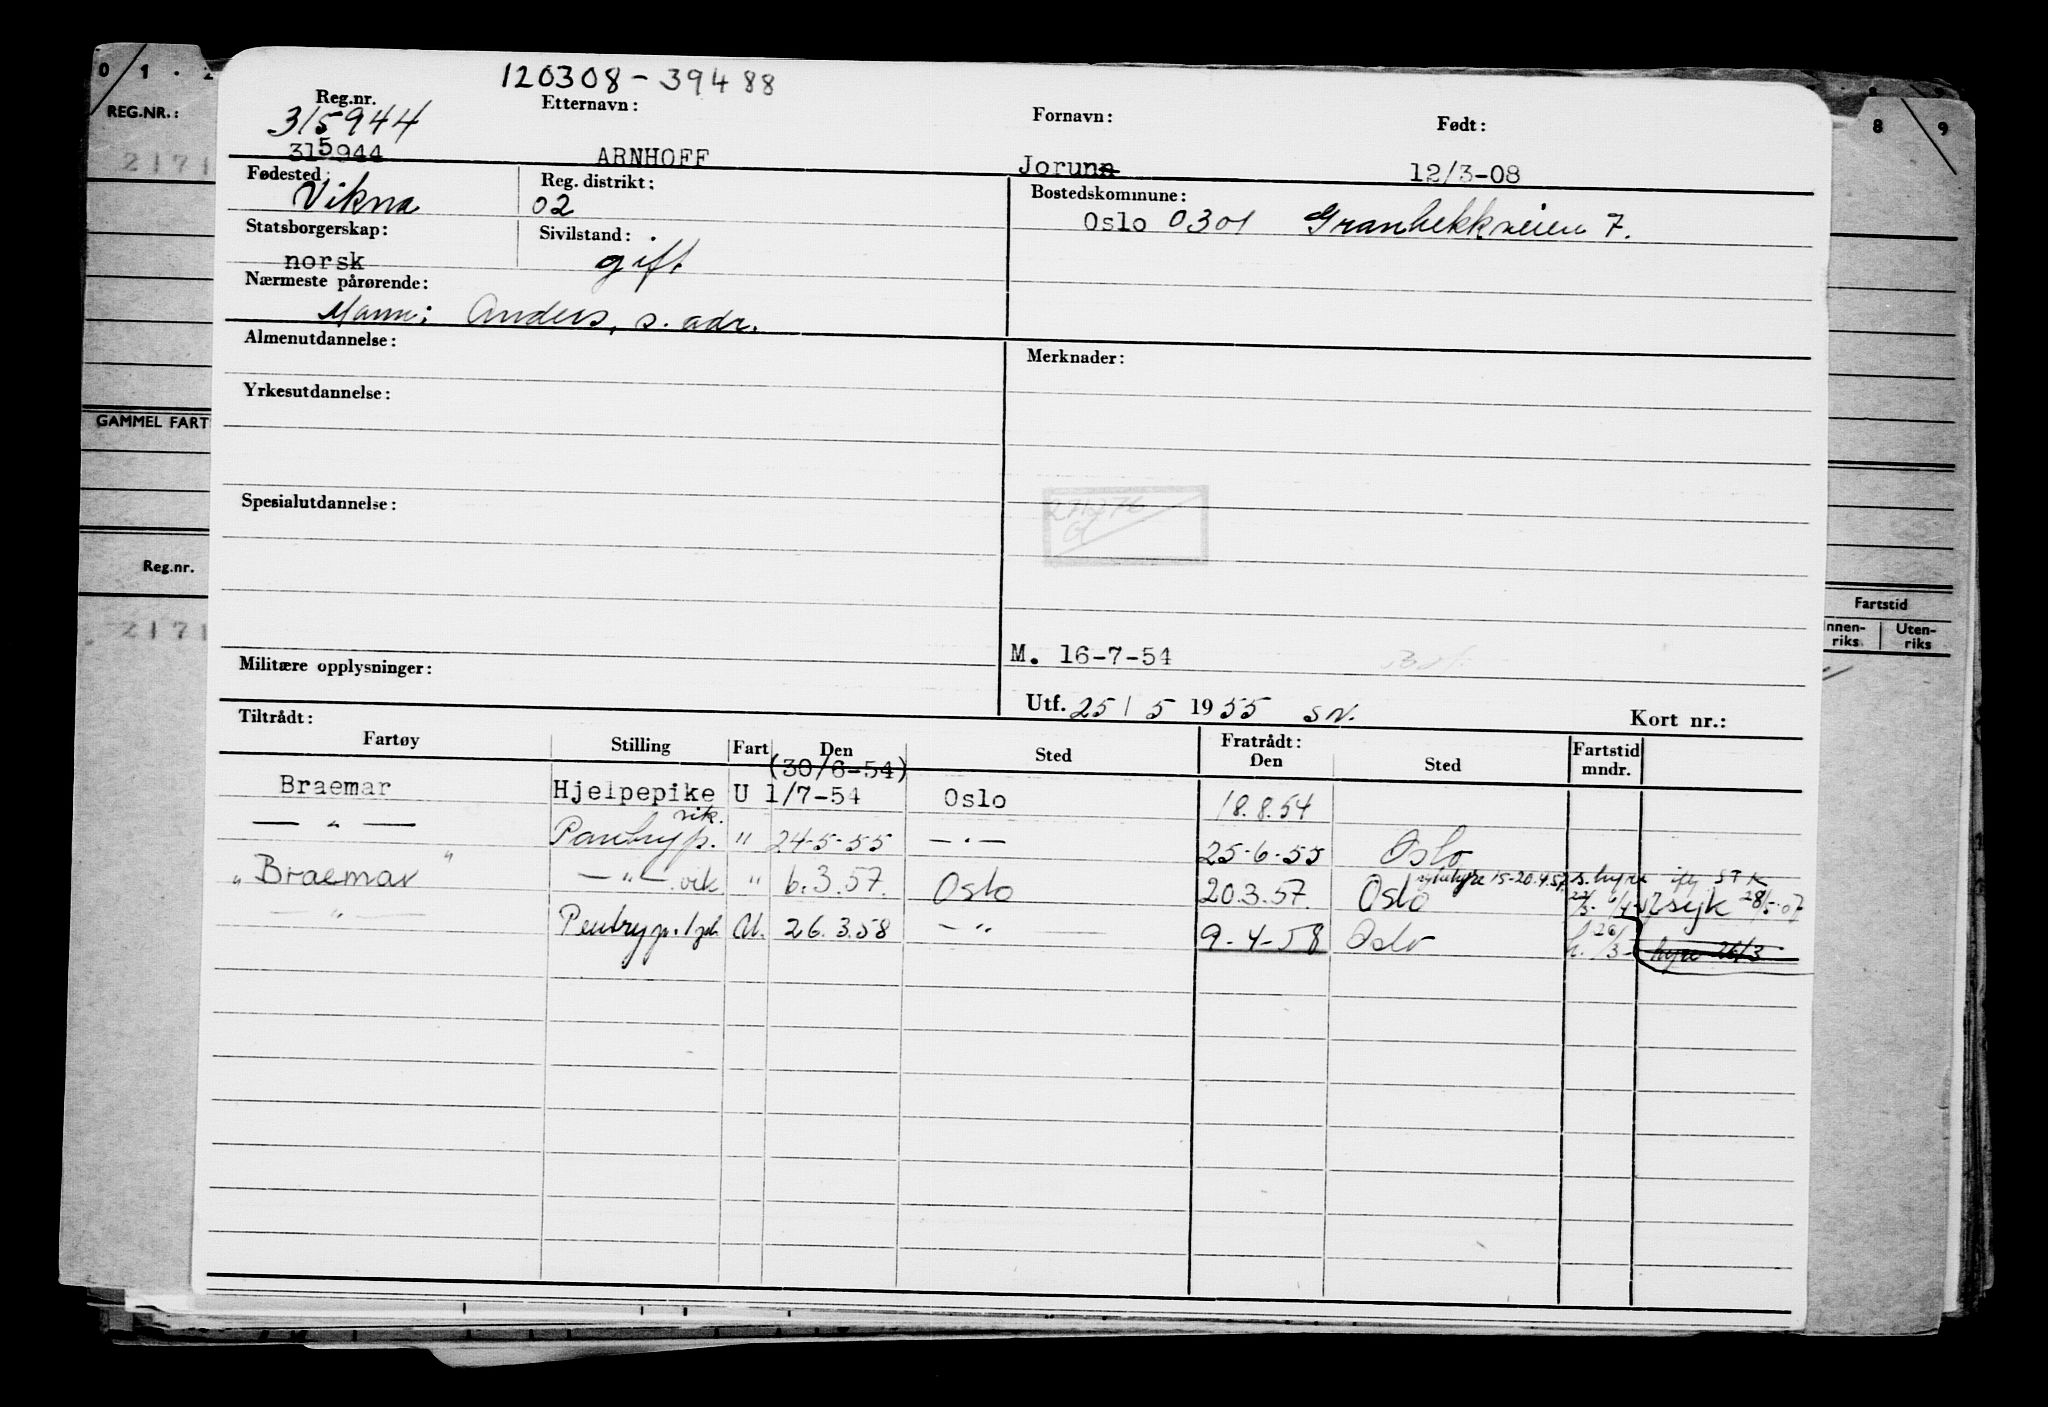 120308-39488
Reg.nr. Etternavn: Fornavn: Født:
315944
315944 ARNHOFF Jorunn 12/3-08
Fødested: Reg. distrikt: Bostedskommune:
Vikna 02 Oslo 0301 Granbekkveien 7.
Statsborgerskap: Sivilstand:
norsk gift
Nærmeste pårørende:
Mann: Anders, s. adr.
Almenutdannelse: Merknader:
Yrkesutdannelse:
Spesialutdannelse:
M. 16-7-54
Militære opplysninger:
Utf. 25/5 1955 SN. Kort nr.:
Tiltrådt: Fratrådt:
Fartøy Stilling Fart Den Sted Den Sted Fartstid mndr.
(30/6-54)
Braemar Hjelpepike U 1/7-54 Oslo 18.8.54
— " — Pantryp. vik. " 24-5-55 — " — 25-6-55 Oslo
" Braemar " — " — vik " 6.3.57. Oslo 20.3.57. Oslo syk 28/5-57
— " — Pentryp. U. 26.3.58 — " — 9-4-58 Oslo h. 26/3- hyre 26/3
0 1 . 2
REG.NR.:
2171
GAMMEL FART
Reg.nr.
2171
8 9
Fartstid
Innen-riks Uten-riks